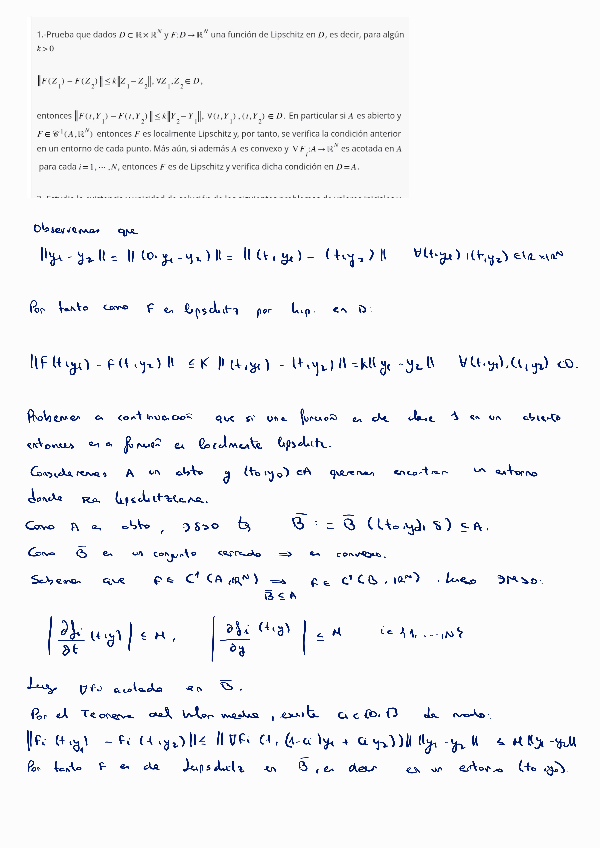 1. Prueba que dados D ⊂ ℝ × ℝ^N y F: D → ℝ^N una función de Lipschitz en D, es decir, para algún
k > 0
‖F(Z_1) − F(Z_2)‖ ≤ k‖Z_1 − Z_2‖, ∀Z_1, Z_2 ∈ D,
entonces ‖F(t, Y_1) − F(t, Y_2)‖ ≤ k‖Y_2 − Y_1‖, ∀(t, Y_1), (t, Y_2) ∈ D. En particular si A es abierto y
F ∈ 𝒞^1(A, ℝ^N) entonces F es localmente Lipschitz y, por tanto, se verifica la condición anterior
en un entorno de cada punto. Más aún, si además A es convexo y ∇F_i: A → ℝ^N es acotada en A
para cada i = 1, ⋯, N, entonces F es de Lipschitz y verifica dicha condición en D = A.
Observemos que
‖y_1 − y_2‖ = ‖(0, y_1 − y_2)‖ = ‖(t, y_1) − (t, y_2)‖ ∀(t, y_1), (t, y_2) ∈ ℝ × ℝ^N
Por tanto como F es lipschitz por hip. en D:
‖F(t, y_1) − F(t, y_2)‖ ≤ K ‖(t, y_1) − (t, y_2)‖ = K‖y_1 − y_2‖ ∀(t, y_1), (t, y_2) ∈ D.
Probemos a continuación que si una función es de clase 1 en un abierto
entonces esa función es localmente lipschitz.
Consideremos A un abto y (t_0, y_0) ∈ A queremos encontrar un entorno
donde sea lipschitziana.
Como A es abto, ∃δ>0 tq B̄ := B̄((t_0, y_0), δ) ⊆ A.
Como B̄ es un conjunto cerrado ⟹ es convexo.
Sabemos que F ∈ C^1(A, ℝ^N) ⟹ F ∈ C^1(B̄, ℝ^N). Luego ∃M>0:
B̄ ⊆ A
|∂f_i/∂t (t, y)| ≤ M, |∂f_i/∂y (t, y)| ≤ M i ∈ {1, ..., N}
Luego ∇F_i acotada en B̄.
Por el Teorema del Valor medio, existe c_i ∈ [0, 1] de modo:
‖F_i(t, y_1) − F_i(t, y_2)‖ ≤ ‖∇F_i(t, (1−c_i)y_1 + c_i y_2)‖ ‖y_1 − y_2‖ ≤ M‖y_1 − y_2‖
Por tanto F es de Lipschitz en B̄, es decir en un entorno (t_0, y_0).